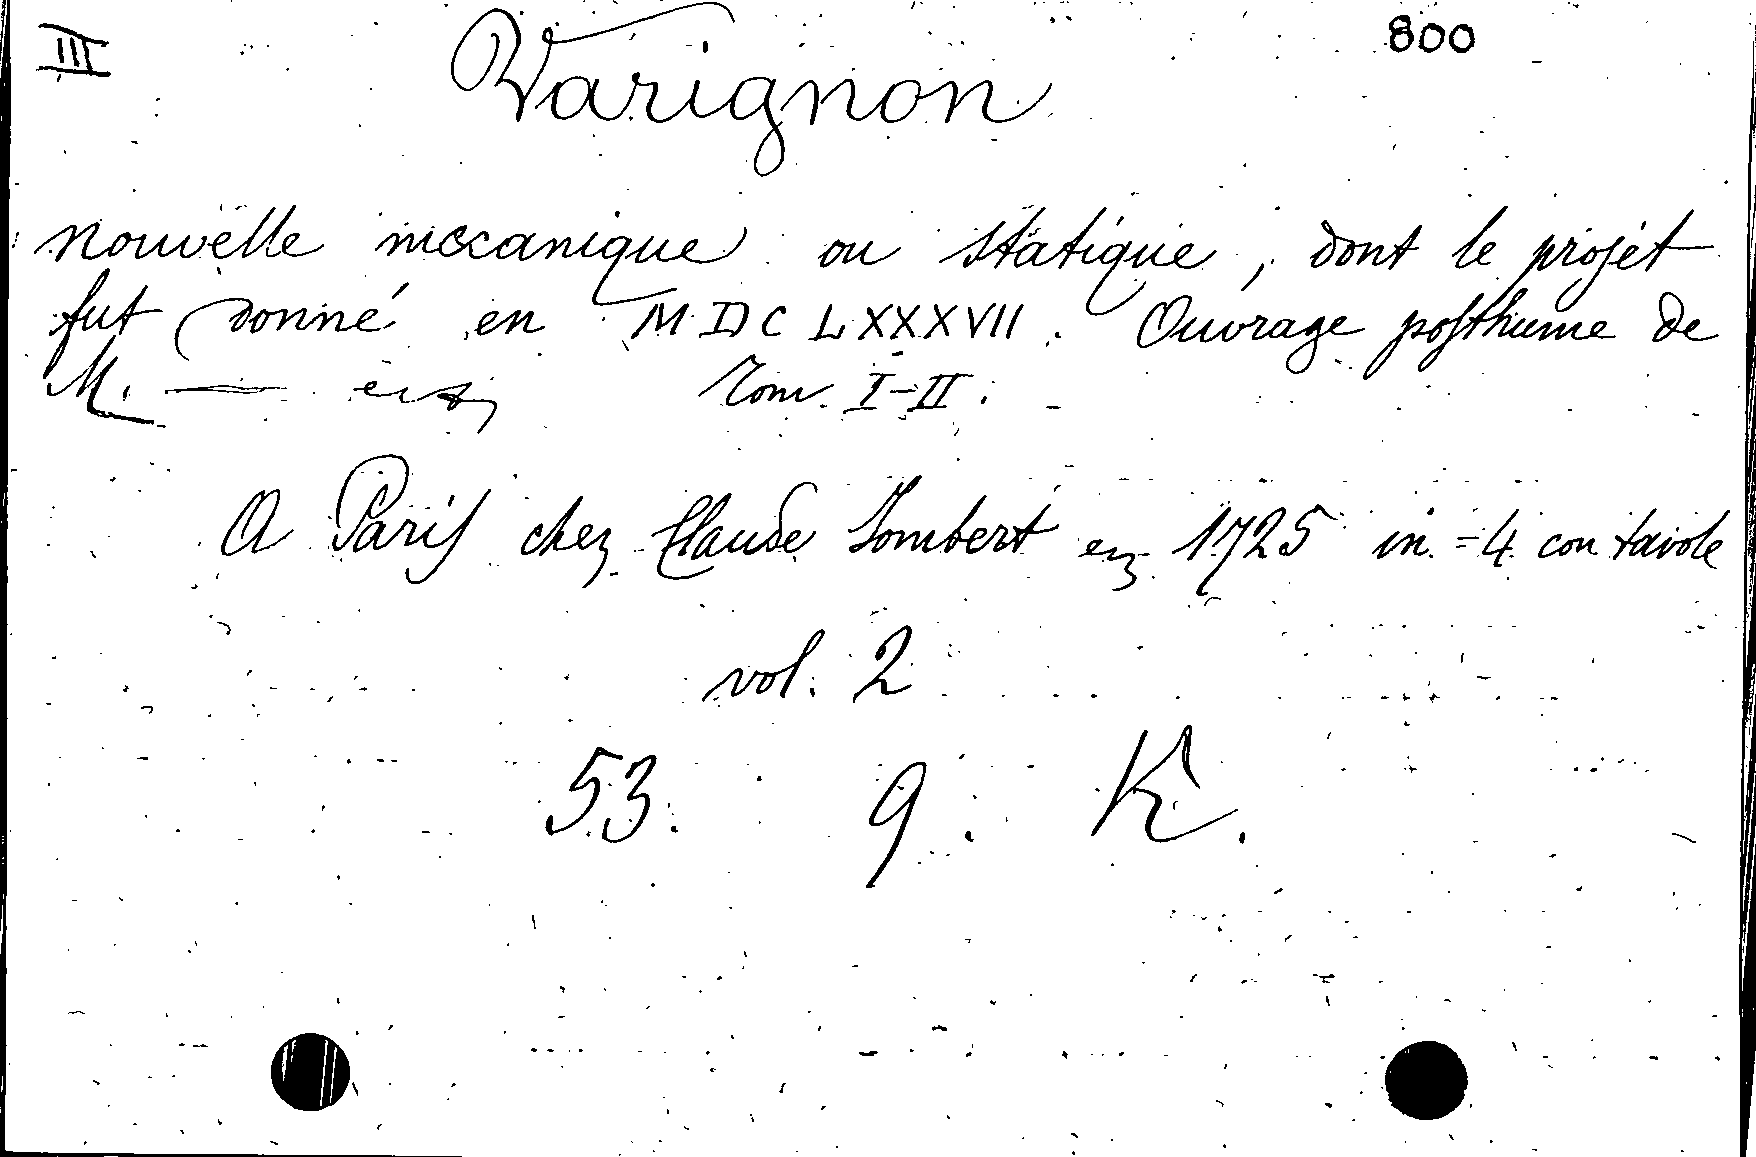 III 800
Varignon
nouvelle meccanique ou statique, dont le projet
fut donné en MDCLXXXVII. Ouvrage posthume de
M. — Tom. I-II.
A Paris chez Claude Jombert en 1725 in-4 con tavole
vol. 2
53. 9. K.